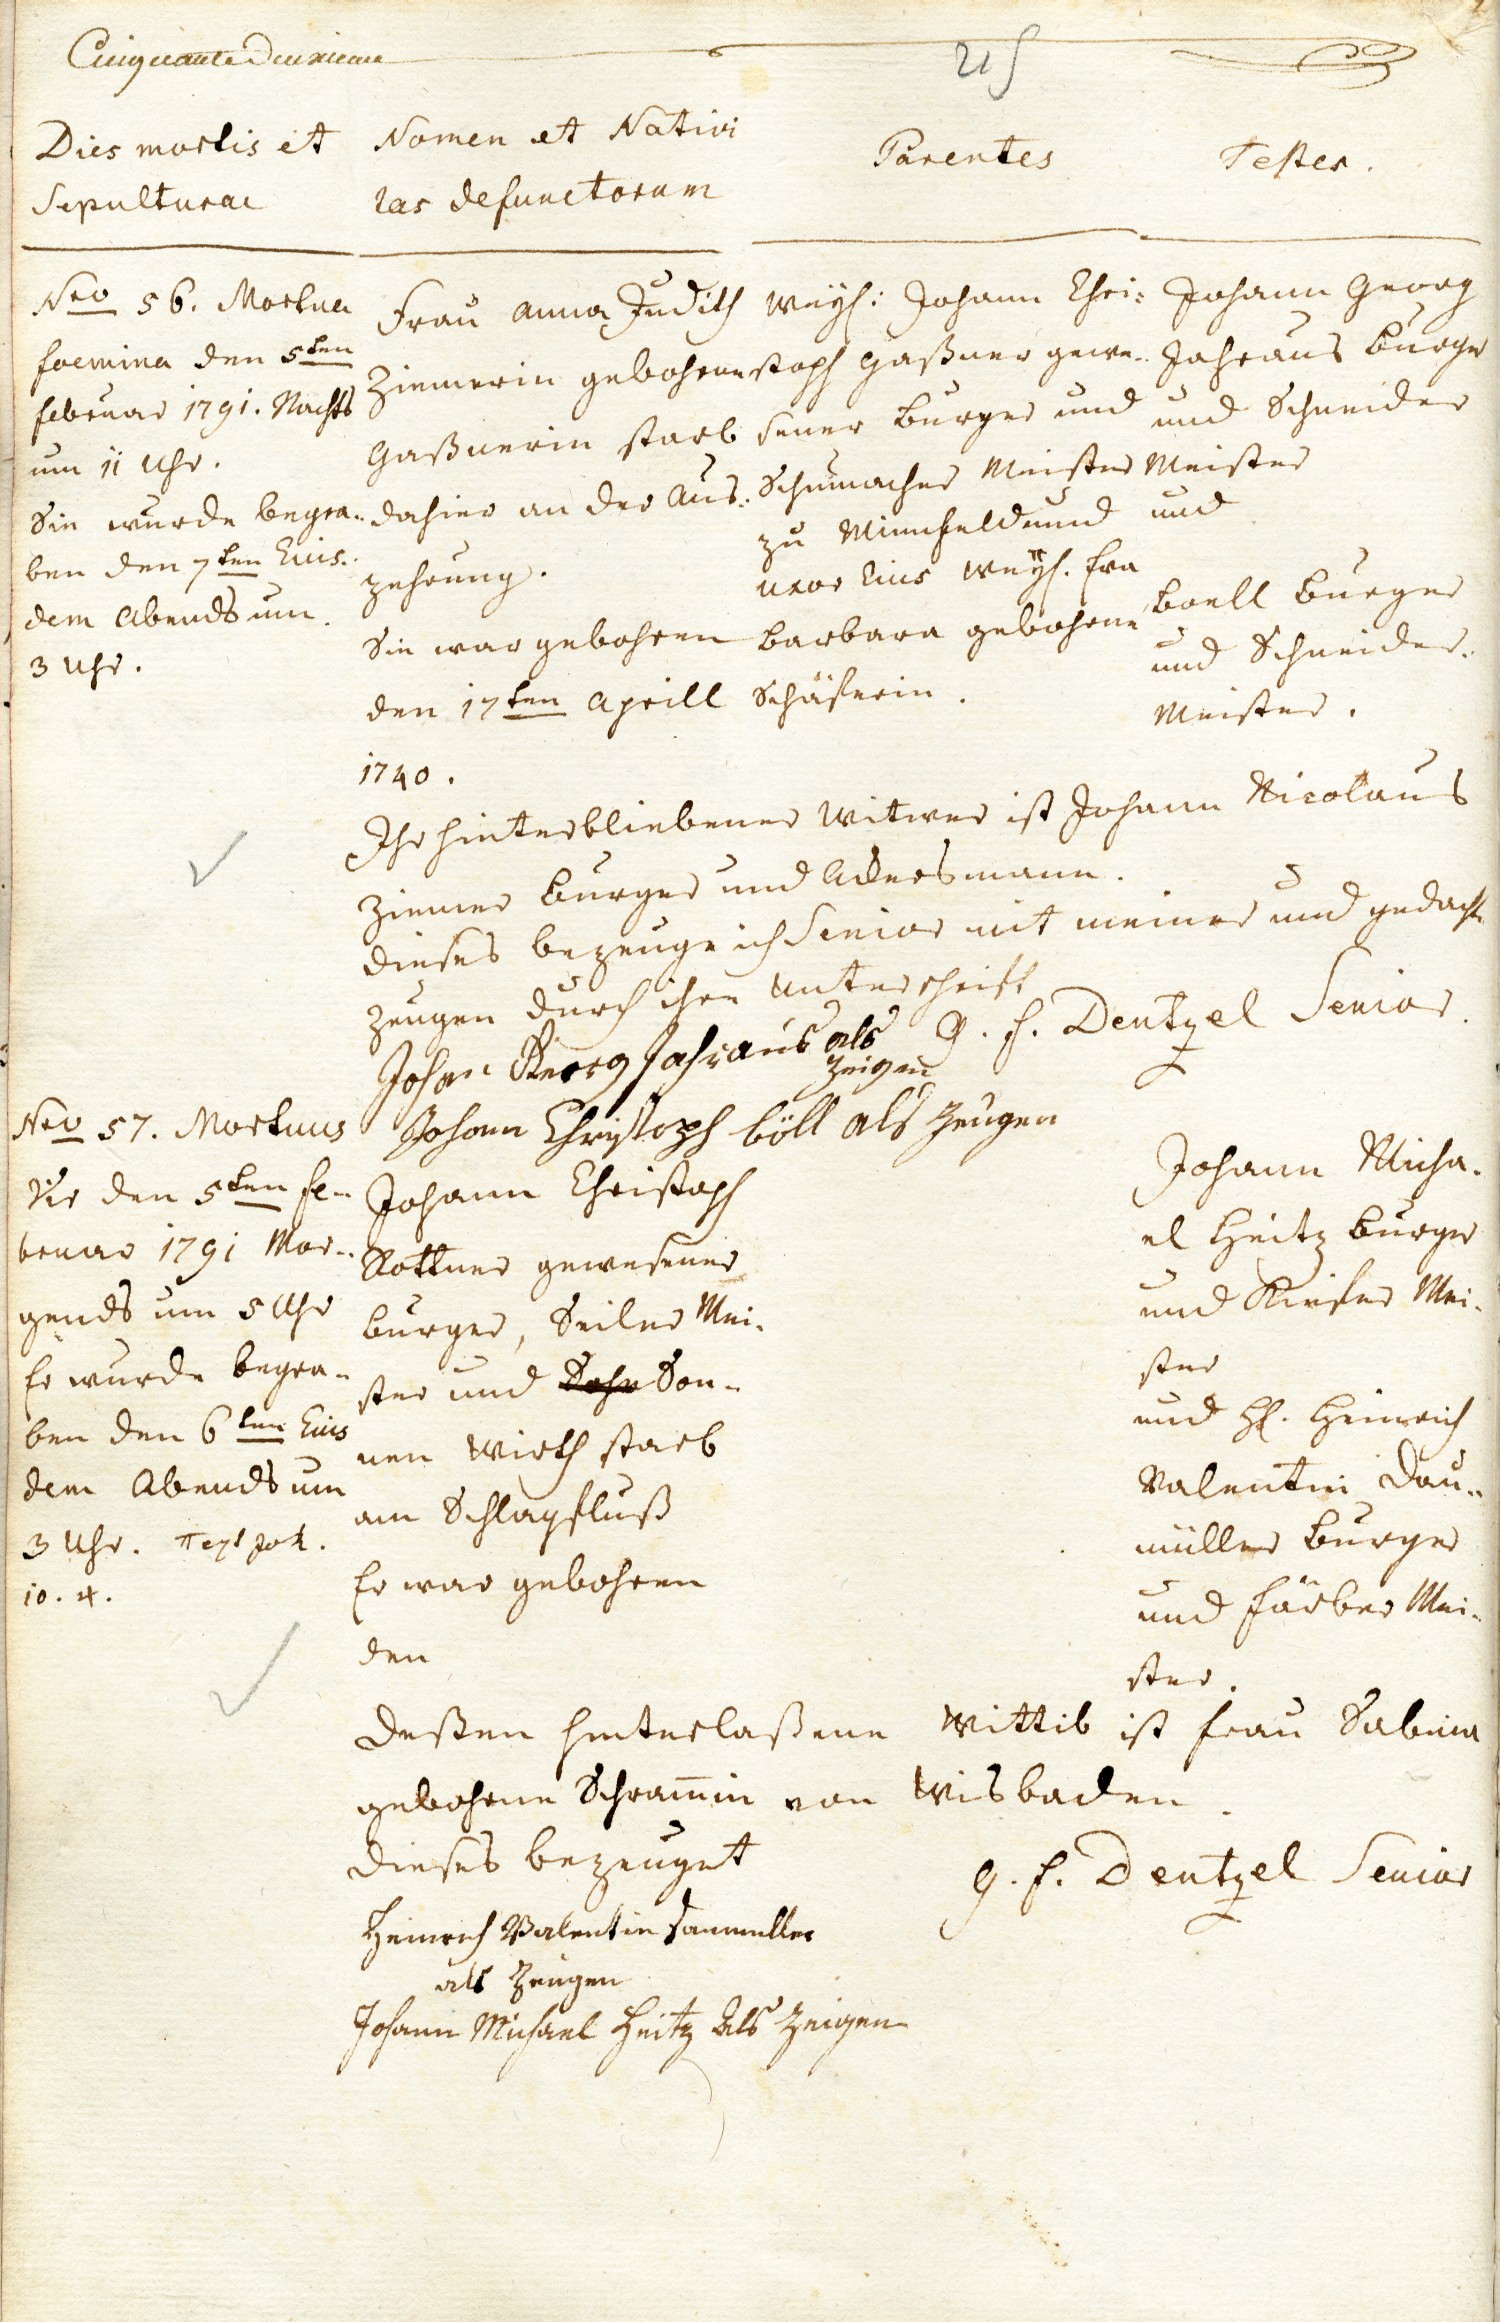 Cinquante Deuxieme
215
Dies mortis et
Sepulturae
Nomen et Nativi
tas defunctorum
Parentes
Testes.
Nro 56. Mortua
foemina den 5ten
Februar 1791. Nachts
um 11 Uhr.
Sie wurde begra-
ben den 7ten Eius-
dem Abends um
3 Uhr.
Frau Anna Judith
Ziemerin gebohrene
Gaßnerin starb
dahier an der Aus-
zehrung.
Sie war gebohren
den 17ten Aprill
1740.
Weyl: Johann Chri-
stoph Gaßner gewe-
sener Burger und
Schumacher Meister
zu Minnfeld und
uxor eius Weyl. Fra
Barbara gebohrene
Schäferin.
Johann Georg
Jahraus Burger
und Schneider
Meister
und
Boell Burger
und Schneider-
Meister.
Ihr hinterbliebener Witwer ist Johann Nicolaus
Ziemer Burger und Ackersmann.
Dieses bezeuge ich Senior mit meiner und gedacht
Zeugen durch ihre Unterschrift
G. F. Dentzel Senior.
Johan Georg Jahraus als
Zeigen
Johann Christoph böll als Zeugen
Nro 57. Mortuus
Vir den 5ten Fe-
bruar 1791 Mor-
gends um 5 Uhr
Er wurde begra-
ben den 6ten Eius
dem Abends um
3 Uhr. Text Joh.
10. 4.
Johann Christoph
Rottner gewesener
Burger, Seiler Mei-
ster und Sohn Son-
nen Wirth starb
am Schlagfluß
Er war gebohren
den
Johann Micha-
el Heitz Burger
und Kiefer Mei-
ster
und H. Heinrich
Valentin Dau-
müller Burger
und Färber Mei-
ster.
Deßen hinterlaßene Wittib ist Frau Sabina
gebohrne Schram̅in von Wisbaden.
Dieses bezeuget
G. F. Dentzel Senior
Heinrich Valentin Daumuller
als Zeugen
Johann Michael Heitz Als Zeigen